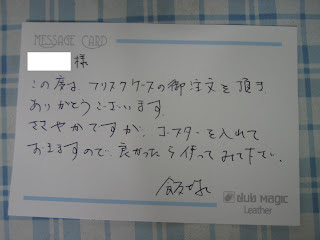 MESSAGE CARD
様
この度は、フリスクケースの御注文を頂き
ありがとうございます。
ささやかですが、コースターを入れて
おきますので、良かったら使ってみて下さい。
MAGIC
Leather